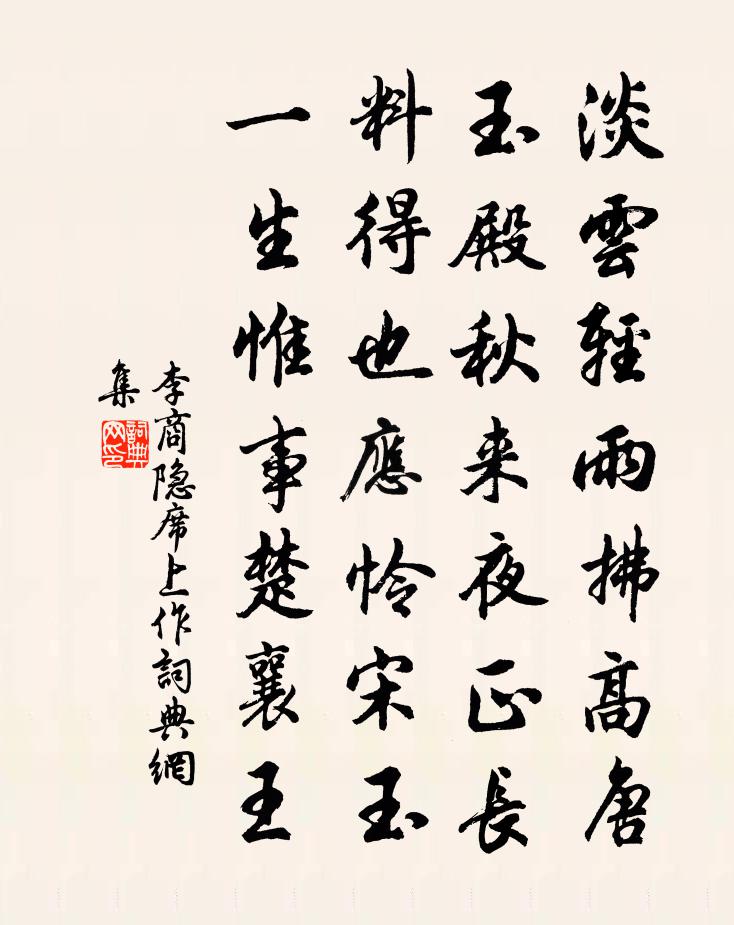 淡雲輕雨拂高唐
玉殿秋来夜正長
料得也應怜宋玉
一生惟事楚襄王
李商隐席上作詞典網
集
詞典
网印